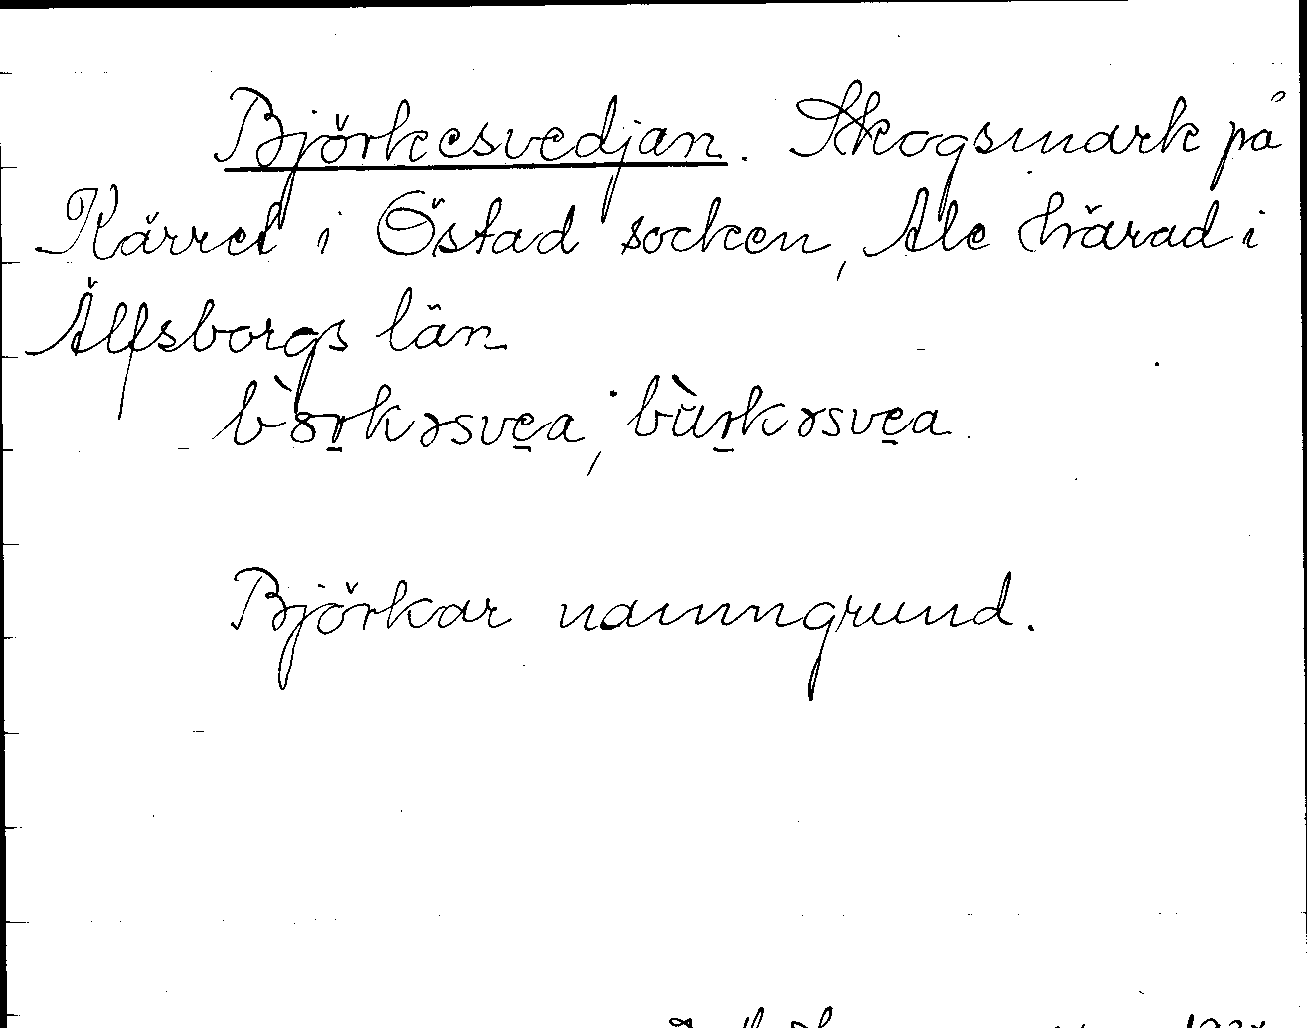 Björkesvedjan. Skogsmark på
Kärret i Östad socken, Ale härad i
Älfsborgs län
bòr̠kəsve̠a, bùr̠kəsve̠a
Björkar namngrund.